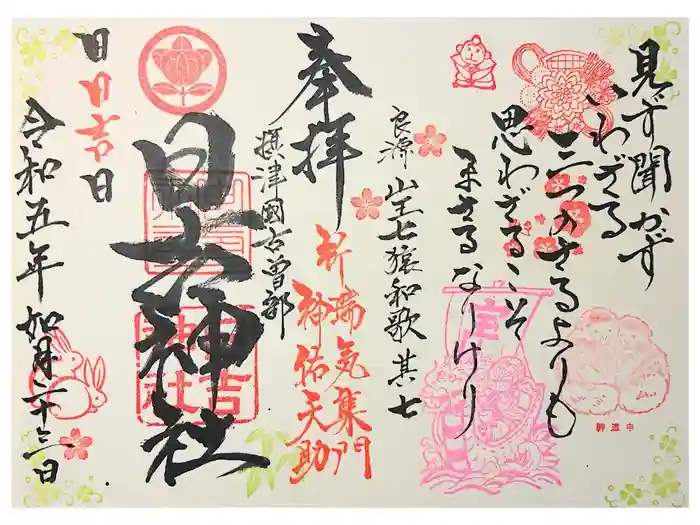 見ず聞かず
いわざる
三つのさるよりも
思わざるこそ
まさるなりけり
良源 山王七猿和歌 其七
奉拝
摂津國古曽部
祈 瑞気集門
神佑天助
日吉神社
日吉神社
日日吉日
令和五年 如月二十三日
宝
神猿申